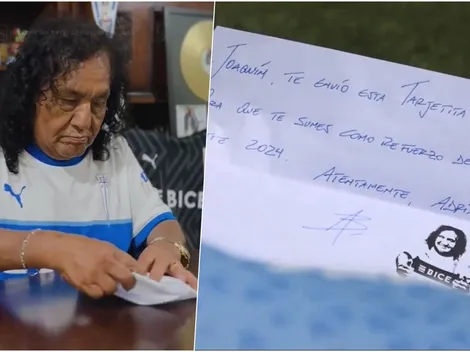 JOAQUÍN, TE ENVIÓ ESTA TARJETITA
QUE TE SUMES COMO REFUERZO DE
2024.
ATENTAMENTE, ADRI
BICE
BICE